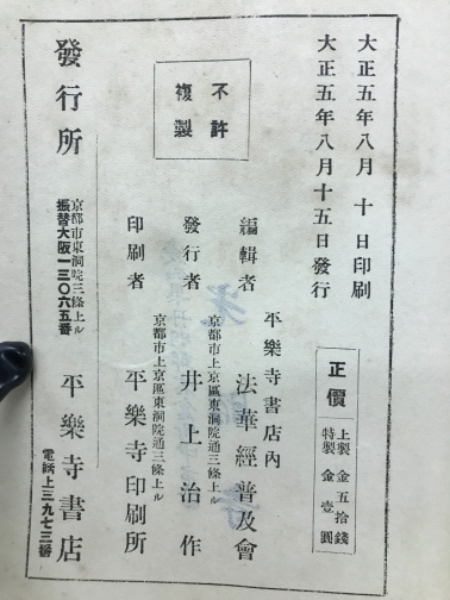 大正五年八月十日印刷
大正五年八月十五日發行
正價
上製金五拾錢
特製金壹圓
不許
複製
平樂寺書店內
編輯者 法華經普及會
京都市上京區東洞院通三條上ル
發行者 井上治作
京都市上京區東洞院通三條上ル
印刷者 平樂寺印刷所
發行所 平樂寺書店
京都市東洞院三條上ル
振替大阪一三〇六五番
電話上三九七三番